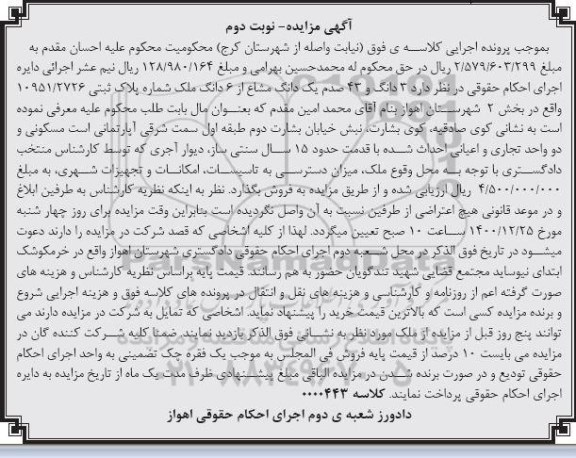 آگهی مزایده- نوبت دوم
بموجب پرونده اجرایی کلاســه ی فوق (نیابت واصله از شهرستان کرج) محکومیت محکوم علیه احسان مقدم به
مبلغ ۲/۵۷۹/۶۰۳/۲۹۹ ریال در حق محکوم له محمدحسین بهرامی و مبلغ ۱۲۸/۹۸۰/۱۶۴ ریال نیم عشر اجرائی دایره
اجرای احکام حقوقی در نظر دارد ۳ دانگ و ۴۳ صدم یک دانگ مشاع از ۶ دانگ ملک شماره پلاک ثبتی ۱۰۹۵۱/۲۷۲۶
واقع در بخش ۲ شهرستان اهواز بنام آقای محمد امین مقدم که بعنــوان مال بابت طلب محکوم علیه معرفی نموده
است به نشانی کوی صادقیه، کوی بشارت، نبش خیابان بشارت دوم طبقه اول سمت شرقی آپارتمانی است مسکونی و
دو واحد تجاری و اعیانی احداث شــده با قدمت حدود ۱۵ ســال سنتی ساز، دیوار آجری که توسط کارشناس منتخب
دادگســتری با توجه بــه محل وقوع ملک، میزان دسترســی به تاسیسـات، امکانــات و تجهیزات شــهری، به مبلغ
۴/۵۰۰/۰۰۰/۰۰۰ ریال ارزیابی شده و از طریق مزایده به فروش بگذارد. نظر به اینکه نظریه کارشناس به طرفین ابلاغ
و در موعد قانونی هیچ اعتراضی از طرفین نسبت به آن واصل نگردیده است بنابراین وقت مزایده برای روز چهار شنبه
مورخ ۱۴۰۰/۱۲/۲۵ ســاعت ۱۰ صبح تعیین میگردد. لهذا از کلیه اشخاصی که قصد شرکت در مزایده را دارند دعوت
میشــود در تاریخ فوق الذکر در محل شــعبه دوم اجرای احکام حقوقی دادگستری شهرستان اهواز واقع در خرمکوشک
ابتدای نیوساید مجتمع قضایی شهید تندگویان حضور به هم رسانند. قیمت پایه براساس نظریه کارشناس و هزینه های
صورت گرفته اعم از روزنامه و کارشناسی و هزینه های نقل و انتقال در پرونده های کلاسه فوق و هزینه اجرایی شروع
و برنده مزایده کسی است که بالاترین قیمت خرید را پیشنهاد نماید. اشخاصی که تمایل به شرکت در مزایده دارند می
توانند پنج روز قبل از مزایده از ملک مورد نظر به نشــانی فوق الذکر بازدید نمایند. ضمنا کلیه شــرکت کننده گان در
مزایده می بایست ۱۰ درصد از قیمت پایه فروش فی المجلس به موجب یک فقره چک تضمینی به واحد اجرای احکام
حقوقی تودیع و در صورت برنده شــدن در مزایده الباقی مبلغ پیشــنهادی ظرف مدت یک ماه از تاریخ مزایده به دایره
اجرای احکام حقوقی پرداخت نمایند. کلاسه ۰۰۰۰۴۴۳
دادورز شعبه ی دوم اجرای احکام حقوقی اهواز